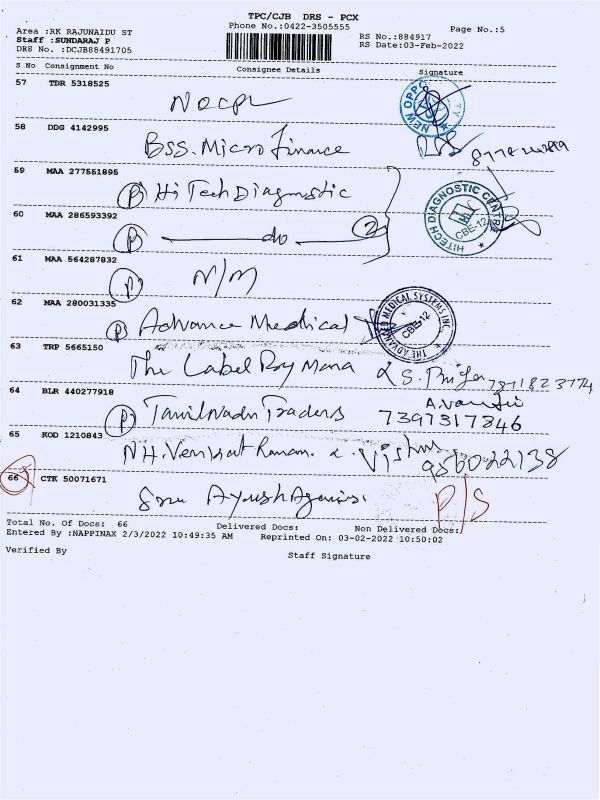 TPC/CJB DRS - PCX
Phone No.:0422-3505555
Page No.:5
Area :RK RAJUNAIDU ST
Staff :SUNDARAJ P
DRS No. :DCJB88491705
RS No.:884917
RS Date:03-Feb-2022
S No Consignment No Consignee Details Signature
57 TDR 5318525
NEW OPPO CITY
58 DDG 4142995
BSS. Micro Finance
59 MAA 277551895
(P) Hi Tech Diagnostic
HITECH DIAGNOSTIC CENTRE
CBE-12
60 MAA 286593392
(P) do (2)
61 MAA 564287832
(P) N/M
62 MAA 280031335
(P) Advance Medical
THE ADVANCED MEDICAL SYSTEMS INC.
CBE-12
63 TRP 5665150
The Label Roy Mana
64 BLR 440277918
(P) Tamilnadu Traders
7397317846
65 KOD 1210843
NH. Venkat Raman
66 CTK 50071671
P/S
Total No. Of Docs: 66 Delivered Docs: Non Delivered Docs:
Entered By :NAPPINAX 2/3/2022 10:49:35 AM Reprinted On: 03-02-2022 10:50:02
Verified By Staff Signature